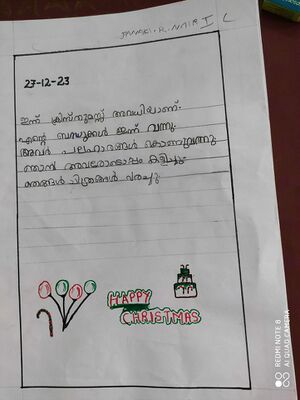 JANAKI.R.NAIR I C
27-12-23
ഇന്ന് ക്രിസ്തുമസ്സ് അവധിയാണ്.
എന്റെ ബന്ധുക്കൾ ഇന്ന് വന്നു.
അവർ പലഹാരങ്ങൾ കൊണ്ടുവന്നു
ഞാൻ അവരോടൊപ്പം കളിച്ചു.
ഞങ്ങൾ ചിത്രങ്ങൾ വരച്ചു
HAPPY
CHRISTMAS
REDMI NOTE 8
AI QUAD CAMERA